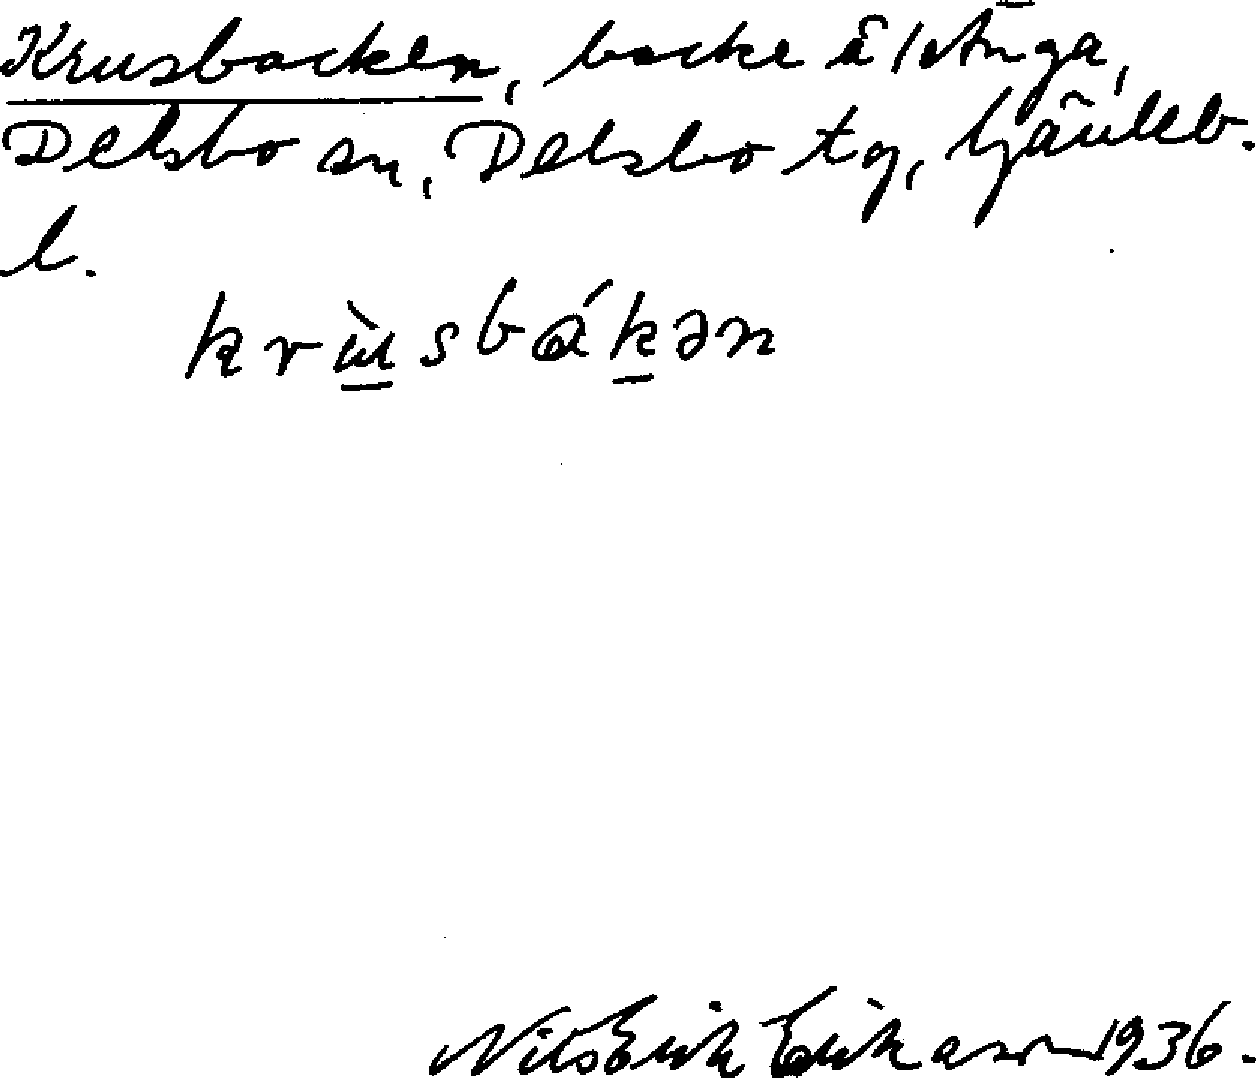 Krusbacken, backe å /st Ånga,
Delsbo sn, Delsbo tg, Gävleb.
l.
krùsbákən
Nils Erik Eriksson 1936.